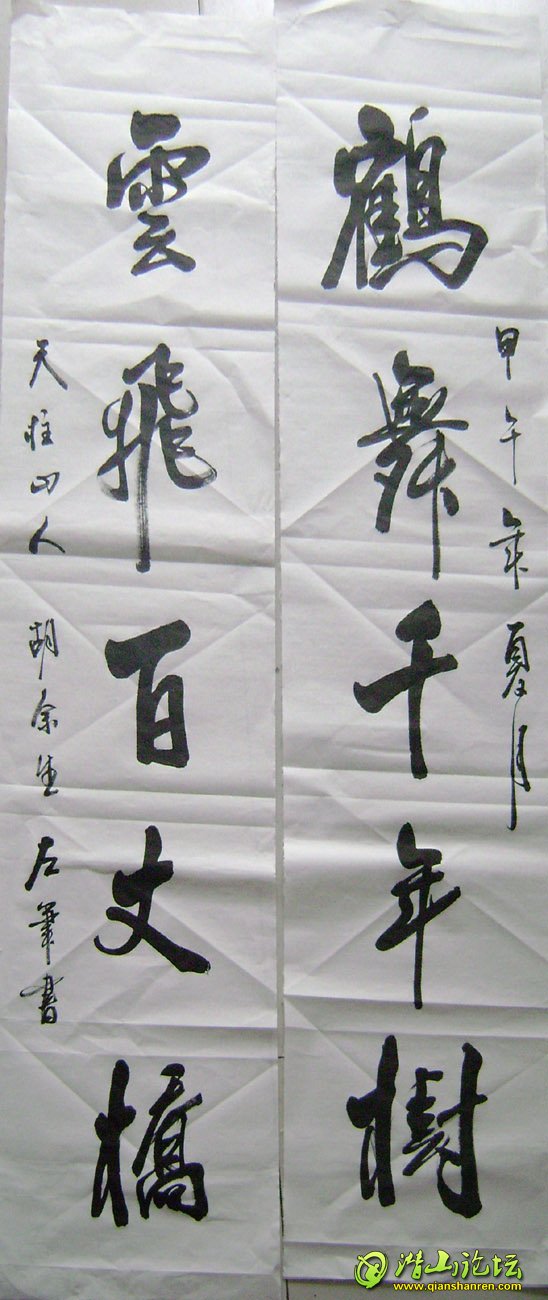 甲午年夏月
鶴舞千年樹
雲飛百丈橋
天柱山人 胡余生 左筆書
潜山论坛
www.qianshanren.com